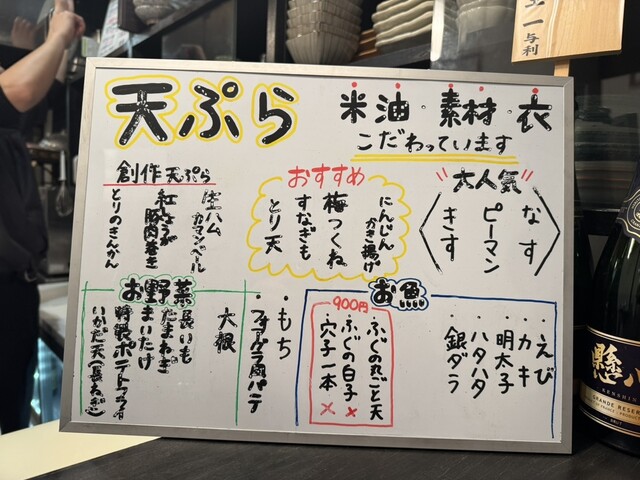 天ぷら
米油・素材・衣
こだわっています
創作天ぷら
生ハム
カマンベール
紅しょうが
豚肉巻き
とりのきんかん
おすすめ
にんじん
かき揚げ
梅つくね
すなぎも
とり天
"大人気"
なす
ピーマン
きす
お野菜
大根
長いも
たまねぎ
まいたけ
特製ポテトフライ
いかだ天(長ねぎ)
・もち
・フォアグラ風パテ
お魚
900円
・ふぐの丸ごと天
・ふぐの白子 ×
・穴子一本 ×
・えび
・カキ
・明太子
・ハタハタ
・銀ダラ
一与利
懸
GRANDE RESERVE